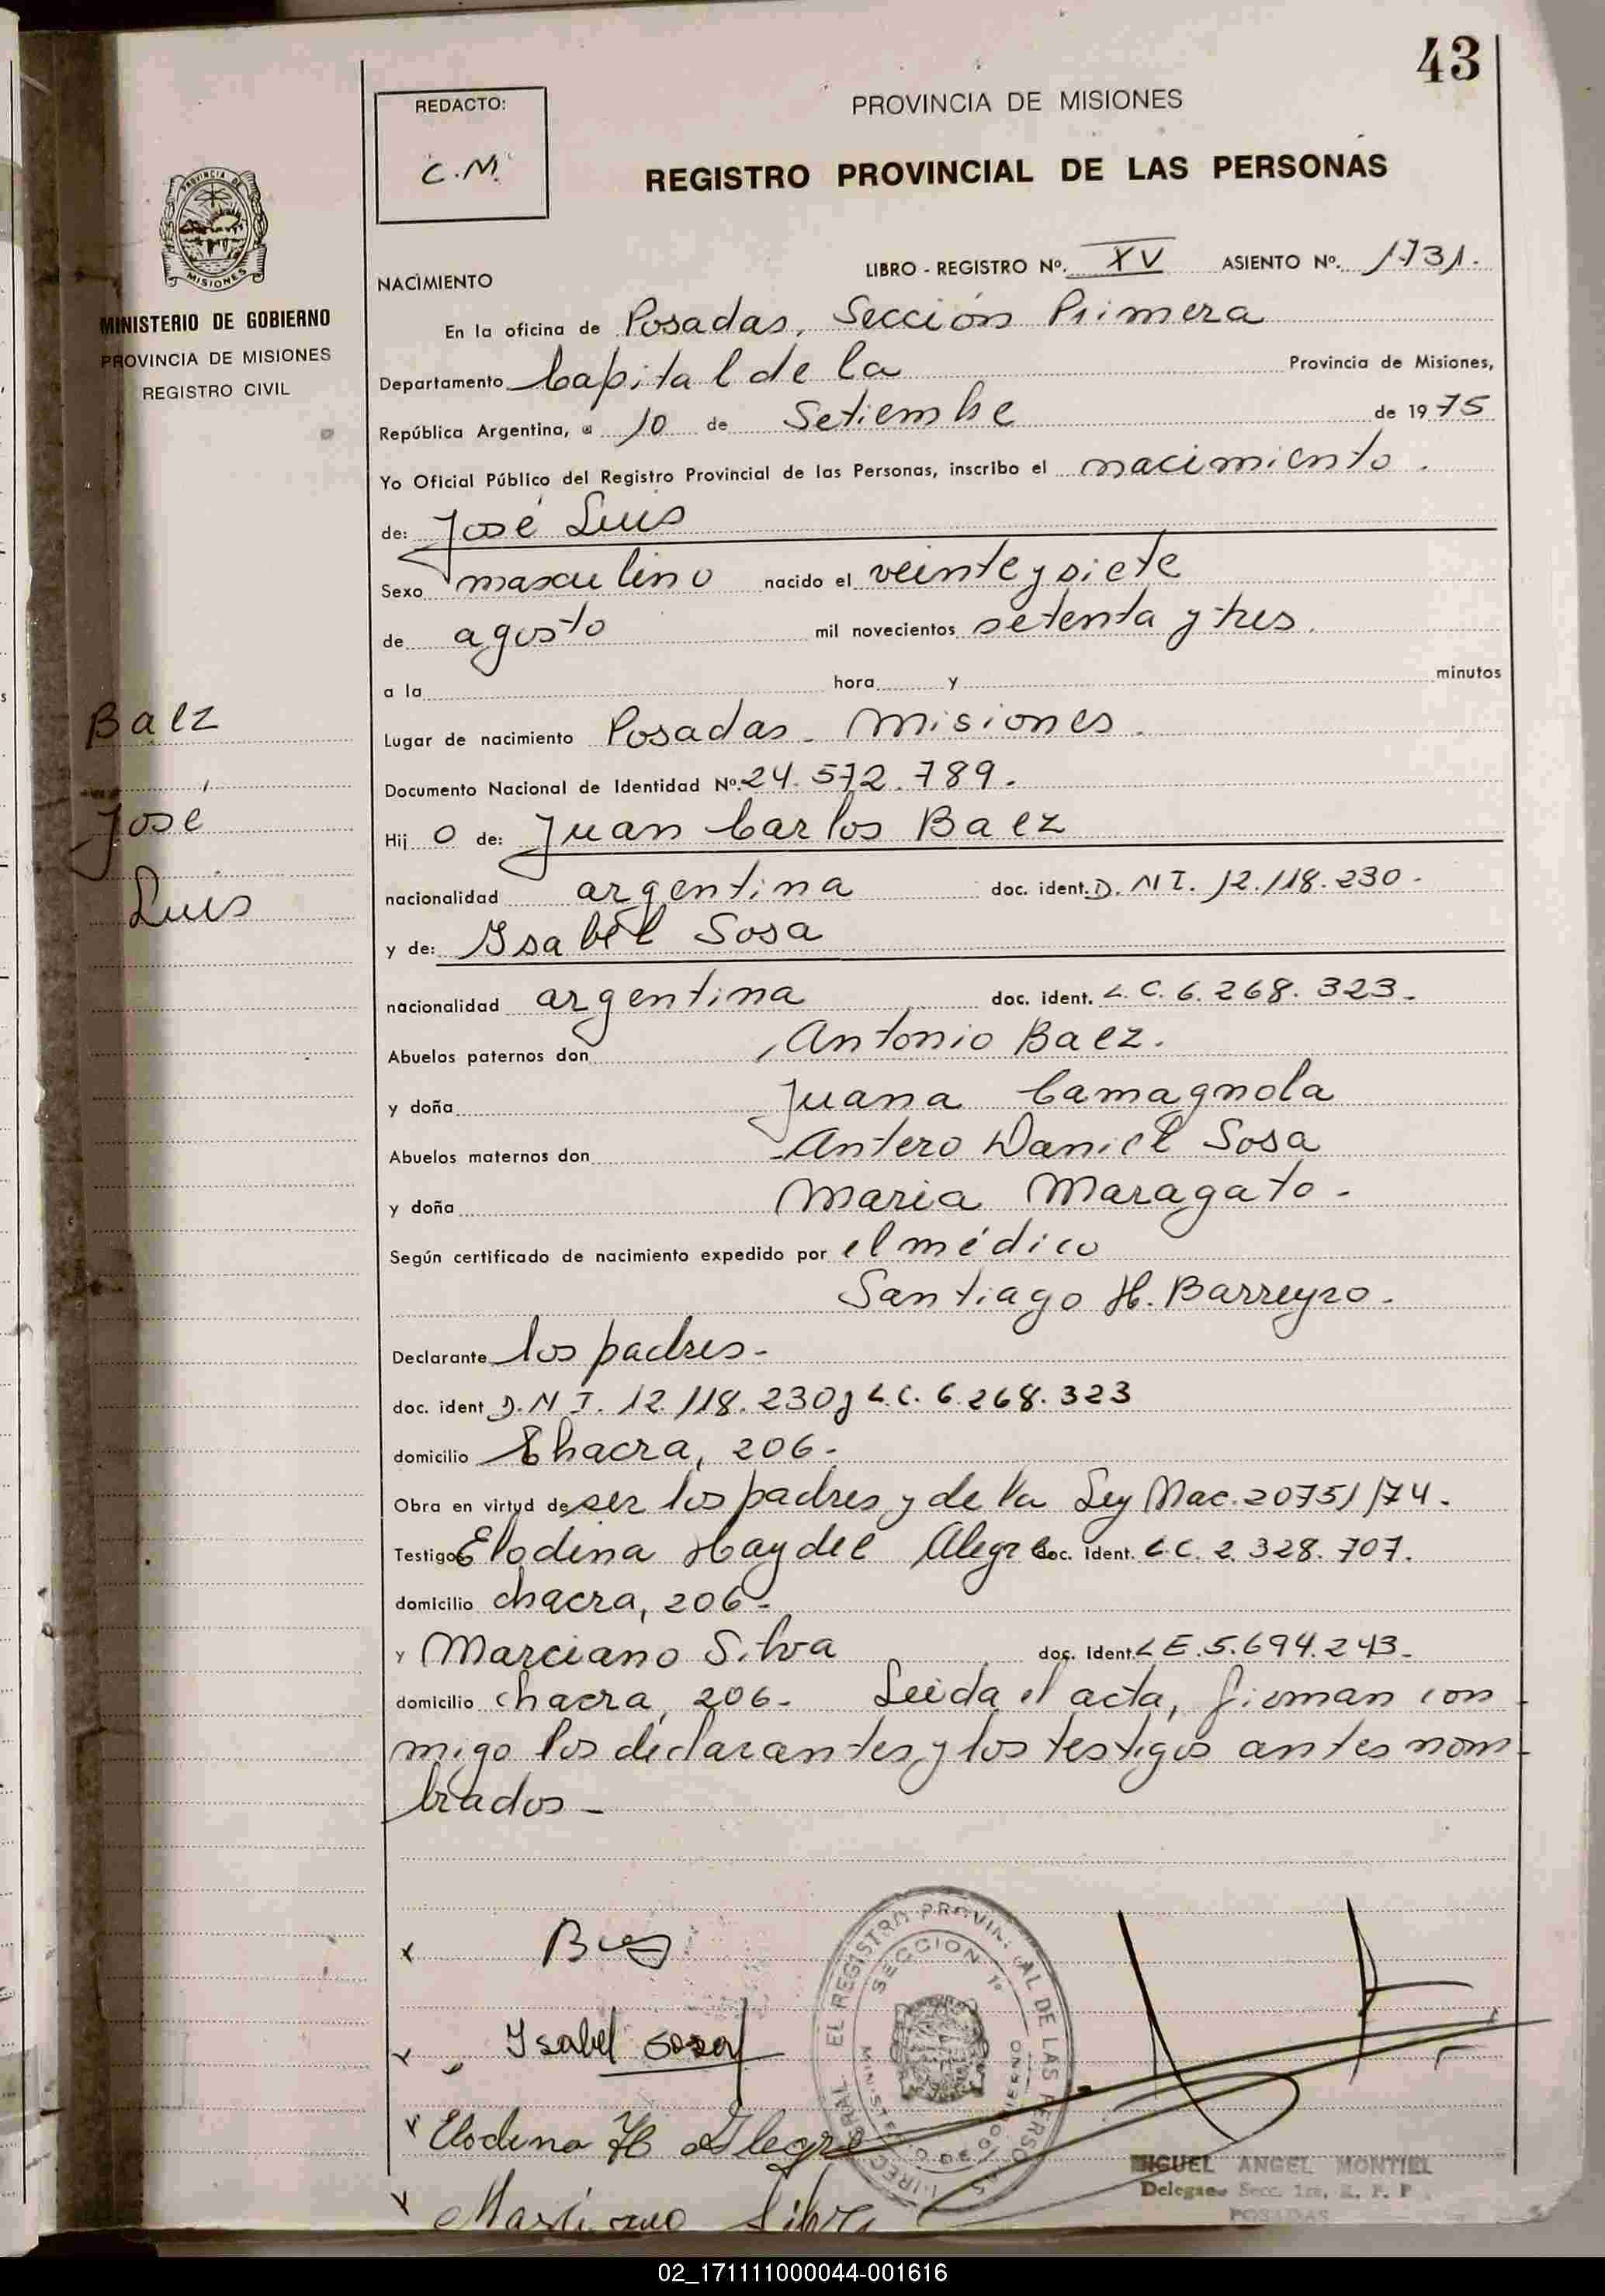 43
REDACTO:
C.M.
PROVINCIA DE MISIONES
REGISTRO PROVINCIAL DE LAS PERSONAS
PROVINCIA DE
MISIONES
MINISTERIO DE GOBIERNO
PROVINCIA DE MISIONES
REGISTRO CIVIL
Baez
José
Luis
LIBRO - REGISTRO Nº. XV ASIENTO Nº. 1731.
NACIMIENTO
En la oficina de Posadas, Sección Primera
Departamento Capital de la Provincia de Misiones,
República Argentina, a 10 de Setiembre de 1975
Yo Oficial Público del Registro Provincial de las Personas, inscribo el nacimiento.
de: José Luis
Sexo masculino nacido el veinte y siete
de agosto mil novecientos setenta y tres.
a la hora y minutos
Lugar de nacimiento Posadas. Misiones.
Documento Nacional de Identidad Nº. 24.572.789.
Hij o de: Juan Carlos Baez
nacionalidad argentina doc. ident. D. N I. 12.118.230.
y de: Ysabel Sosa
nacionalidad argentina doc. ident. L. C. 6.268.323.
Abuelos paternos don Antonio Baez.
y doña Juana Camagnola
Abuelos maternos don Antero Daniel Sosa
y doña Maria Maragato.
Según certificado de nacimiento expedido por el médico
Santiago H. Barreyro.
Declarante los padres.
doc. ident D. N I. 12.118.230 y L.C. 6.268.323
domicilio Chacra, 206.
Obra en virtud de ser los padres y de la Ley Nac. 20751/74.
Testigos Elodina Haydee Alegre doc. ident. L.C. 2.328.707.
domicilio chacra, 206.
y Marciano Silva doc. ident. L E. 5.694.243.
domicilio chacra, 206. Leida el acta, firman con
migo los declarantes y los testigos antes nom
brados.
x
Ysabel Sosa
x Elodina H Alegre
x Marciano Silva
REGISTRO PROVINCIAL DE LAS PERSO
SECCION 1ª
MIGUEL ANGEL MONTIEL
Delegado Secc. 1ra. R. P. P.
POSADAS
02_171111000044-001616